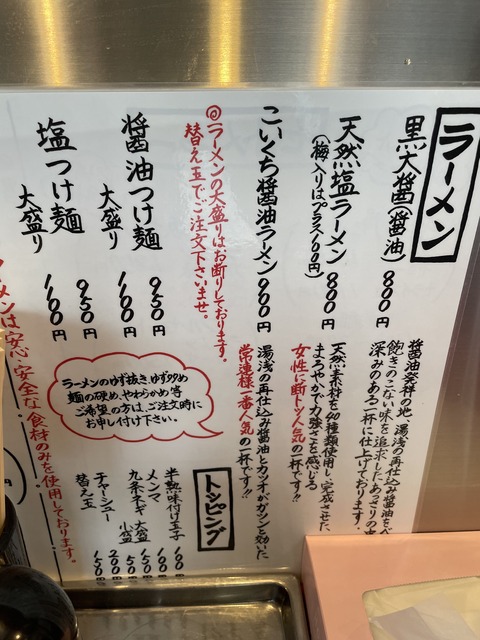 ラーメン
黒大醤(醤油) 800円
醤油発祥の地、湯浅の再仕込み醤油をベ
飽きのこない味を追求したあっさりの中
深みのある一杯に仕上げております。
天然塩ラーメン 800円
(梅入りはプラス100円)
天然素材を40種類使用し完成させた、
まろやかで力強さを感じる
女性に断トツ人気の一杯です!!
こいくち醤油ラーメン 900円
湯浅の再仕込み醤油とカツオがガツンと効いた
常連様一番人気の一杯です!!
◎ラーメンの大盛りはお断りしております。
替え玉でご注文下さいませ。
醤油つけ麺 950円
大盛り 1100円
塩つけ麺 950円
大盛り 1100円
ラーメンのゆず抜き、ゆず少なめ
麺の硬め、やわらかめ等
ご希望の方は、ご注文時に
お申し付け下さい。
トッピング
半熟味付け玉子 100
メンマ 100
九条ネギ 大盛 150
小盛 50
チャーシュー 200
替え玉 150
ーメンは安心・安全な食材のみを使用しております。